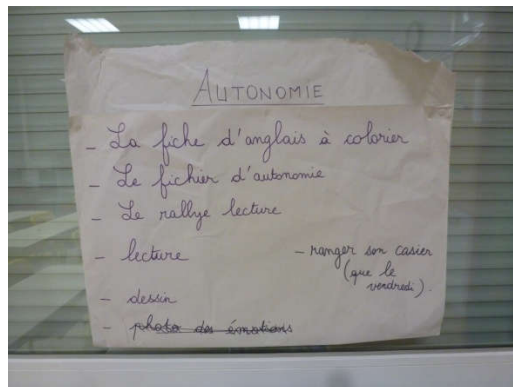 AUTONOMIE
- La fiche d'anglais à colorier
- Le fichier d'autonomie
- Le rallye lecture
- lecture
- ranger son casier
(que le
vendredi).
- dessin
- photo des émotions